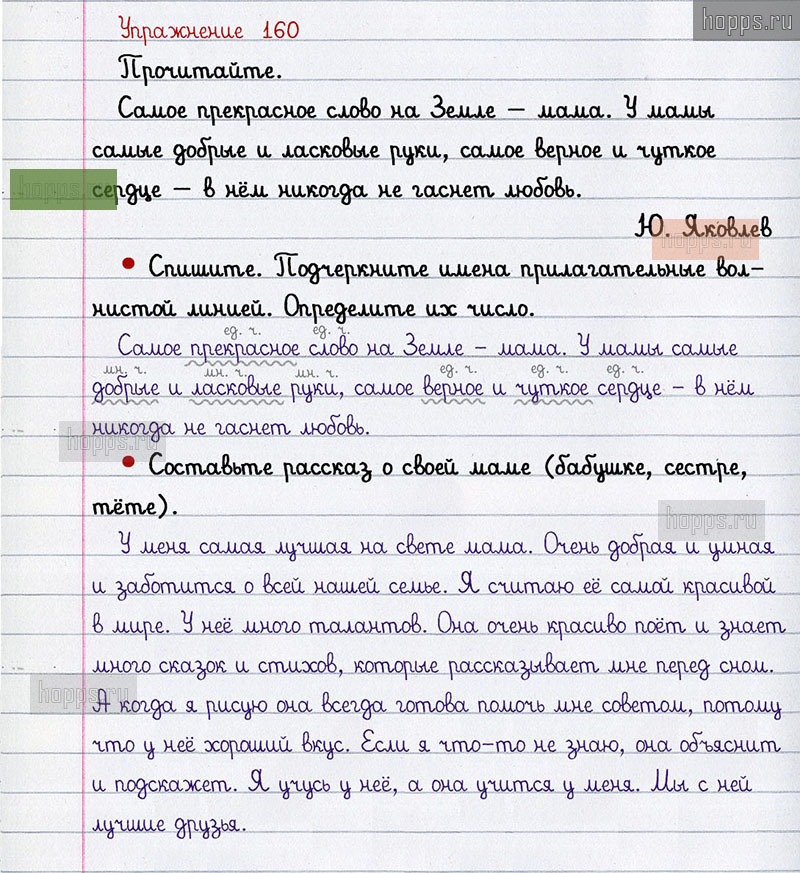 hopps.ru
Упражнение 160
Прочитайте.
Самое прекрасное слово на Земле – мама. У мамы
самые добрые и ласковые руки, самое верное и чуткое
hopps.ru
сердце – в нём никогда не гаснет любовь.
Ю. Яковлев
hopps.ru
• Спишите. Подчеркните имена прилагательные вол-
нистой линией. Определите их число.
ед. ч. ед. ч.
Самое прекрасное слово на Земле – мама. У мамы самые
мн. ч. мн. ч. мн. ч. ед. ч. ед. ч. ед. ч.
добрые и ласковые руки, самое верное и чуткое сердце – в нём
никогда не гаснет любовь.
hopps.ru
• Составьте рассказ о своей маме (бабушке, сестре,
тёте).
hopps.ru
У меня самая лучшая на свете мама. Очень добрая и умная
и заботится о всей нашей семье. Я считаю её самой красивой
в мире. У неё много талантов. Она очень красиво поёт и знает
много сказок и стихов, которые рассказывает мне перед сном.
hopps.ru
А когда я рисую она всегда готова помочь мне советом, потому
что у неё хороший вкус. Если я что-то не знаю, она объяснит
и подскажет. Я учусь у неё, а она учится у меня. Мы с ней
лучшие друзья.